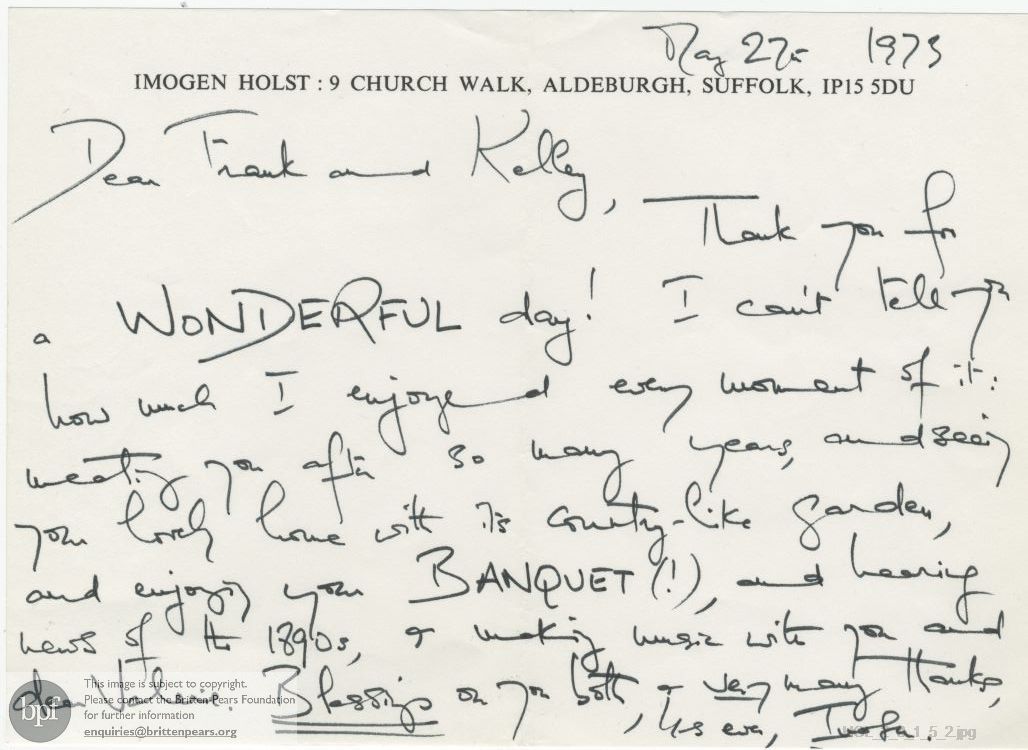 May 27th 1973
IMOGEN HOLST : 9 CHURCH WALK, ALDEBURGH, SUFFOLK, IP15 5DU
Dear Frank and Kelley,
Thank you for
a WONDERFUL day! I can't tell you
how much I enjoyed every moment of it:
meeting you after so many years, and seeing
your lovely home with its country-like garden,
and enjoying your BANQUET (!), and hearing
news of the 1890s, & making music with you and
dear
Blessings on you both, & very many thanks,
Yrs ever, Imogen.
This image is subject to copyright.
Please contact the Britten-Pears Foundation
for further information
enquiries@brittenpears.org
bpf
1_5_2.jpg